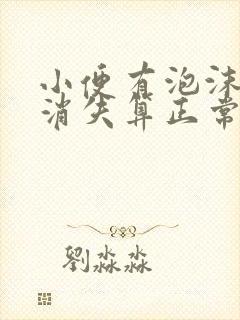 小便有泡沫
消失算正常
劉淼淼